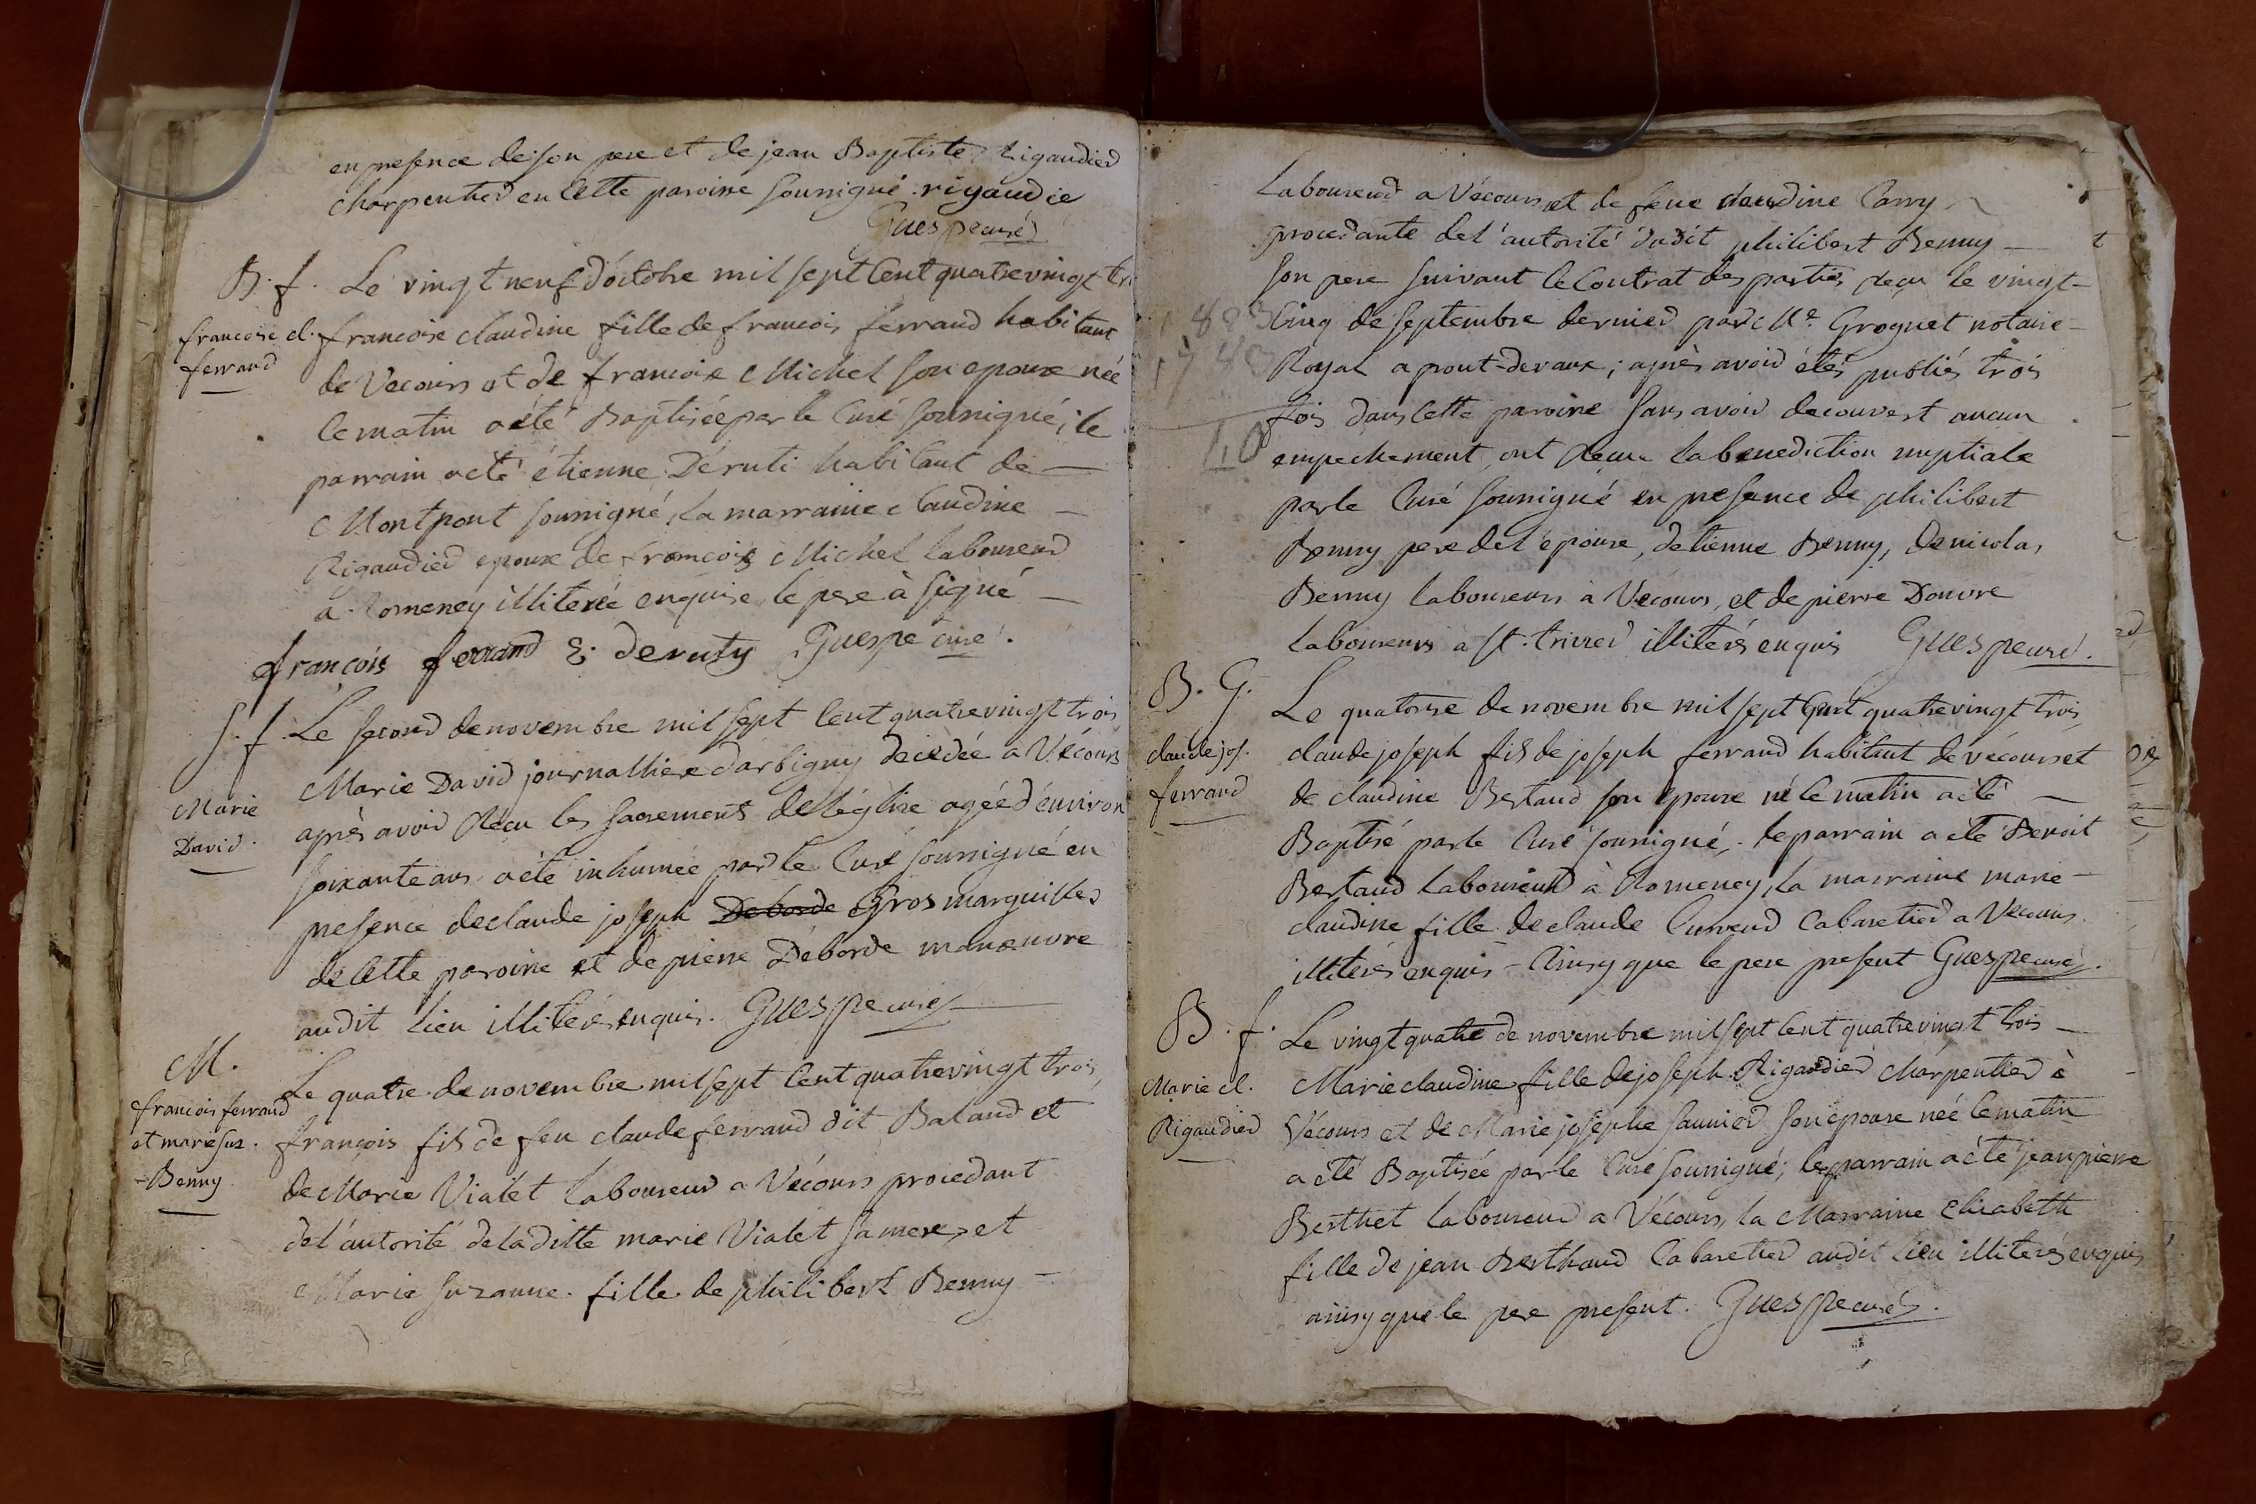 en presence de son pere et de jean Baptiste Rigaudier
charpentier en cette paroisse soussigné. rigaudié
Guespe curé
B. f. Le vingt neuf d'óctobre mil sept cent quatre vingt
francoise cl. ferrand
francoise claudine fille de francois ferrand habitant
de Vecours et de francoise Michel son epouse née
le matin a été Baptisée par le Curé soussigné, le
parrain a été étienne Déruti habitant de —
Montpont soussigné, la marraine claudine —
Rigaudier epouse de francois Michel laboureur
a Romeney illiterée enquise le pere à signé —
françois ferrand E: deruty Guespe curé.
S. f. Le second de novembre mil sept cent quatre vingt trois
Marie David.
Marie David journalliere d'arbigny decedée a Vécours
après avoir Reçu les sacrements de l'église agée d'environ
soixante ans a été inhumée par le Curé soussigné en
presence de claude joseph Deborde Gros marguillier
de cette paroisse et de pierre Déborde manœuvre
audit lieu illiterés enquis. Guespe curé
M.
francois ferrand et marie suz. Benny
Le quatre de novembre mil sept cent quatre vingt trois,
françois fils de feu claude ferrand dit Baland et
de Marie Vialet laboureur a Vécours procedant
de l'autorité de la ditte marie Vialet sa mere, et
Marie suzanne fille de philibert Benny —
laboureur a Vécours et de feue claudine Carry
procedante de l'autorité dudit philibert Benny —
son pere suivant le Contrat des parties reçu le vingt-
Cinq de septembre dernier par Me. Groguet notaire —
Royal a pont-devaux; après avoir étés publiés trois
fois dans cette paroisse sans avoir decouvert aucun
empechement, ont Reçu la benediction nuptiale
par le Curé soussigné en presence de philibert
Benny pere de l'epouse, d'etienne Benny, de nicolas
Benny laboureurs à Vecours, et de pierre Donvre
laboureurs a st. trivier illiterés enquis Guespe curé.
B. G. Le quatorse de novembre mil sept cent quatre vingt trois,
claude jos. ferrand
claude joseph fils de joseph ferrand habitant de vécours et
de claudine Bertaud son epouse né le matin a été —
Baptisé par le Curé soussigné, le parrain a été Benoit
Bertaud laboureur à Romeney, la marraine marie —
claudine fille de claude Cabaretier a Vecours
illiterés enquis — Ainsy que le pere present Guespe curé.
B. f. Le vingt quatre de novembre mil sept cent quatre vingt trois —
Marie cl. Rigaudier
Marie claudine fille de joseph Rigaudier charpentier à
Vécours et de Marie josephe saunier son epouse née le matin
a été Baptisée par le Curé soussigné; le parrain a été jean pierre
Berthet laboureur a Vécours, la Marraine Elisabeth
fille de jean Berthaud Cabaretier audit lieu illiterés enquis
ainsy que le pere present. Guespe curé.